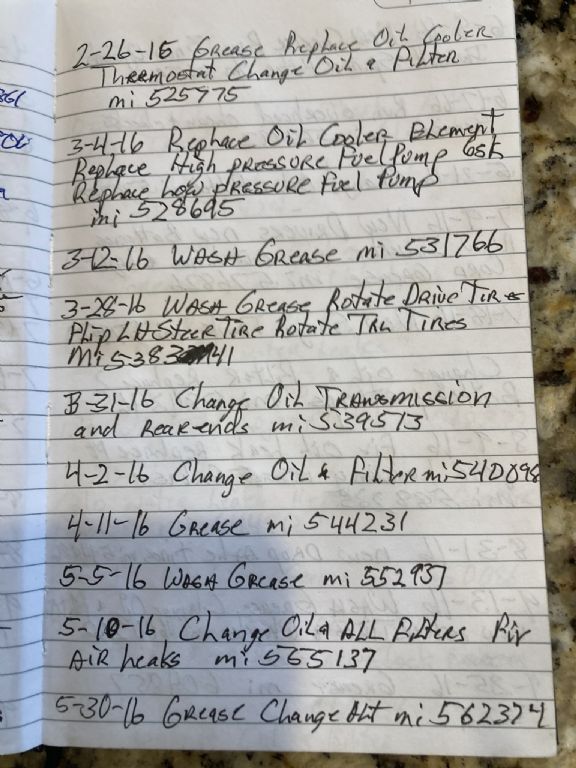 2-26-16 Grease Replace Oil Cooler
Thermostat Change Oil & Filter
mi 525975
3-4-16 Replace Oil Cooler Element
Replace High pressure Fuel Pump Gsk
Replace Low pressure Fuel Pump
mi 528695
3-12-16 Wash Grease mi 531766
3-28-16 Wash Grease Rotate Drive Tires
Flip LH Steer Tire Rotate Tru Tires
Mi 538341
3-31-16 Change Oil Transmission
and Rear-ends mi 539513
4-2-16 Change Oil & Filter mi 540898
4-11-16 Grease mi 544231
5-5-16 Wash Grease mi 552937
5-10-16 Change Oil & ALL Filters Fix
Air leaks mi 555137
5-30-16 Grease Change Alt mi 562374